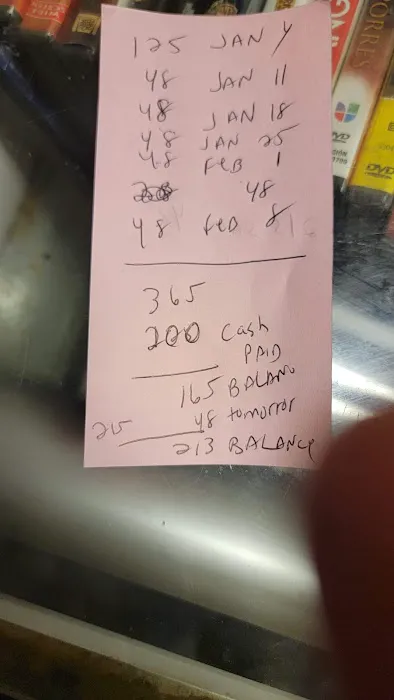 125 JAN 4
48 JAN 11
48 JAN 18
48 JAN 25
48 FEB 1
48
48 FEB 8
365
200 Cash
PAID
165 BALANC
48 tomorror
215
213 BALANCE
TORRES
DVD
DVD